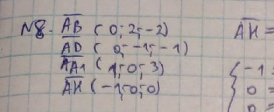 N8. AB (0; 2; -2) AH =
AD (0; -1; -1)
AA1 (1; 0; 3)
AH (-1; 0; 0)
{ -1 =
0 =